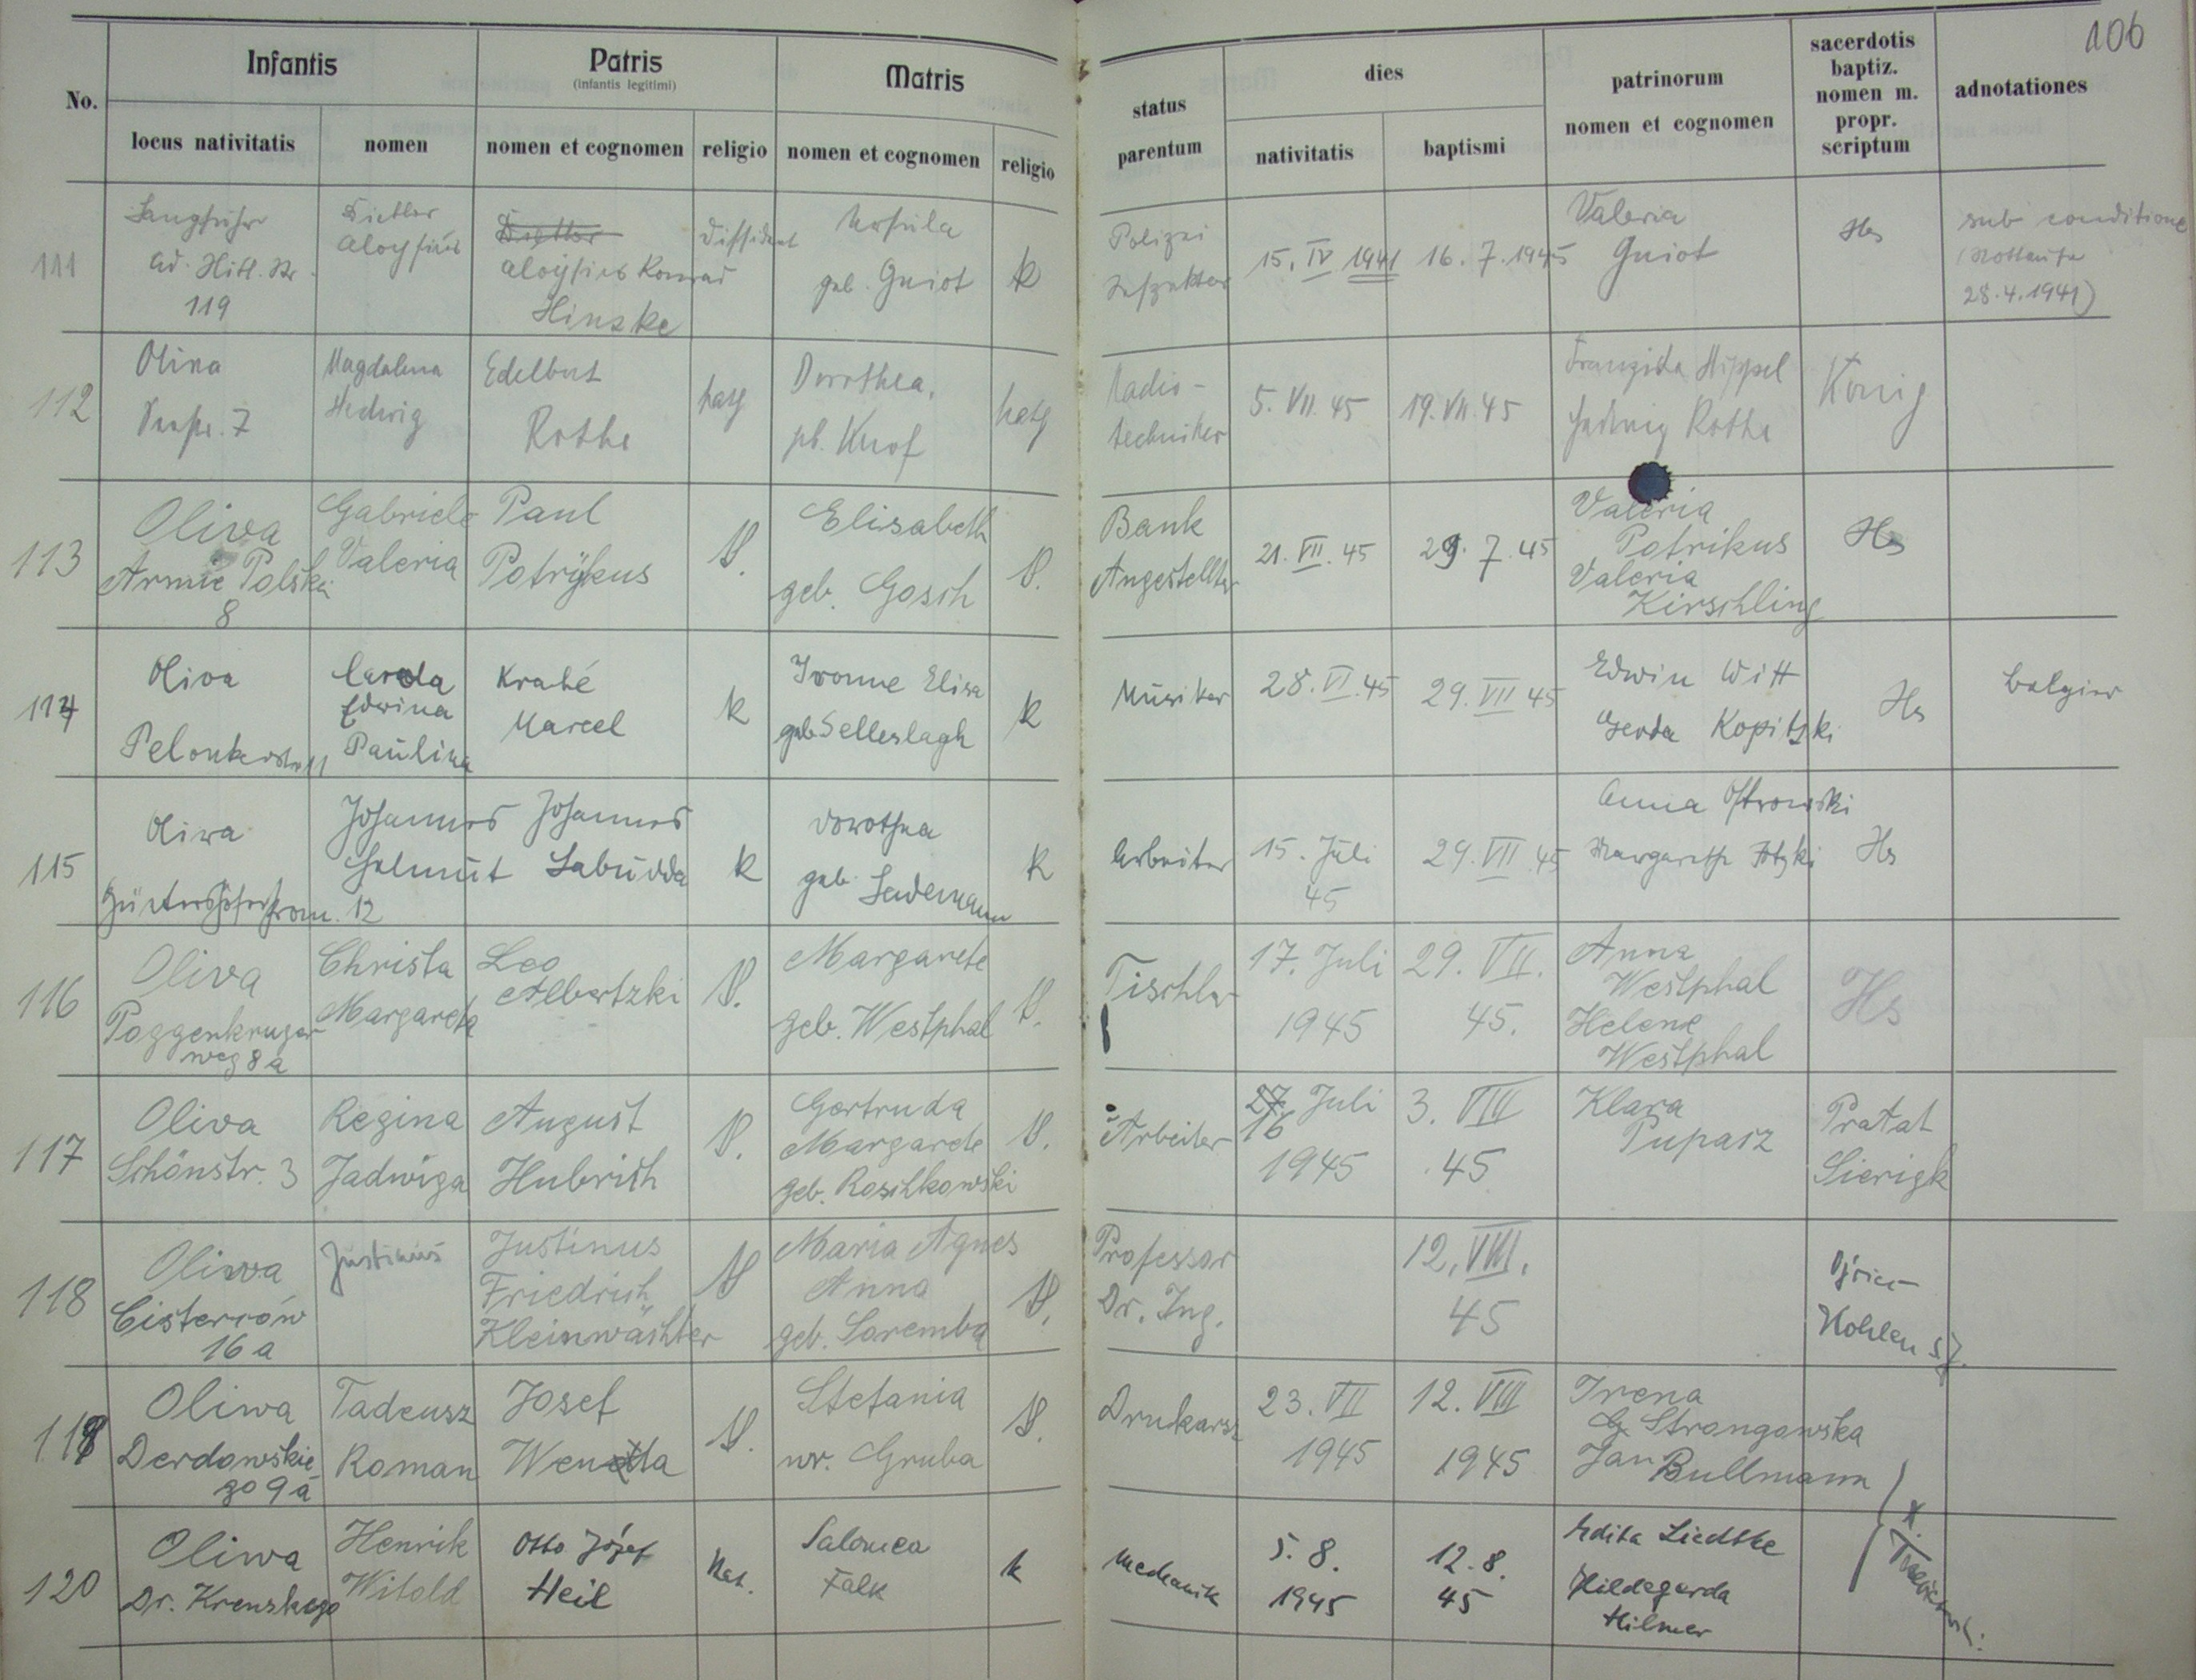 106
Infantis
Patris
(infantis legitimi)
Matris
status
parentum
dies
patrinorum
nomen et cognomen
sacerdotis
baptiz.
nomen m.
propr.
scriptum
adnotationes
No.
locus nativitatis
nomen
nomen et cognomen
religio
nomen et cognomen
religio
nativitatis
baptismi
111
Langfuhr
Ad. Hitl. Str.
119
Dietler
Aloysius
Aloysius Konrad
Hinzke
Dissident
Ursula
geb. Guiot
K
Polizei
Inspektor
15. IV 1941
16. 7. 1945
Valeria
Guiot
Hs
sub conditione
28.4.1941)
112
Oliva
7
Magdalena
Hedwig
Edelbert
Rothe
kath
Dorothea,
geb. Knof
kath
Radio-
techniker
5. VII. 45
19. VII. 45
Franziska Hippel
Hedwig Rothe
König
113
Oliva
Armie Polski
8
Gabriele
Valeria
Paul
Potrykus
Elisabeth
geb. Gosch
Bank
Angestellter
21. VII. 45
29. 7. 45
Valeria
Potrikus
Valeria
Kirschling
Hs
114
Oliva
Pelonkerstr 11
Carola
Edwina
Paulina
Krahé
Marcel
K
Ivonne Elisa
geb Selleslagh
K
Musiker
28. VI. 45
29. VII 45
Edwin Witt
Gerda Kopitzki
Hs
Belgier
115
Oliwa
12
Johannes
Helmut
Johannes
Labudda
K
Dorothea
geb. Lademann
K
Arbeiter
15. Juli
45
29. VII 45
Anna Ostrowski
Margarethe
Hs
116
Oliva
Poggenkruger
weg 8a
Christa
Margareta
Leo
Albertzki
Margarete
geb. Westphal
Tischler
17. Juli
1945
29. VII.
45.
Anna
Westphal
Helene
Westphal
Hs
117
Oliva
Schönstr. 3
Regina
Jadwiga
August
Hubrich
Gertruda
Margarete
geb. Roschkowski
Arbeiter
27. Juli
16
1945
3. VIII
45
Klara
Pupasz
Prałat
Sierigk
118
Oliwa
Cistersów
16 a
Justinus
Justinus
Friedrich
Kleinwächter
Maria Agnes
Anna
geb. Saremba
Professor
Dr. Ing.
12. VIII.
45
S.J.
119
Oliwa
Derdowskie
go 9 a
Tadeusz
Roman
Josef
Wenta
Stefania
ur. Gruba
Drukarz
23. VII
1945
12. VIII
1945
Irena
Strongowska
Jan Bullmann
120
Oliwa
Dr. Krenskego
Henrik
Witold
Otto Józef
Heil
Kat.
Salomea
Falk
k
mechanik
5. 8.
1945
12. 8.
45
Edita Liedtke
Hildegarda
Hilmer